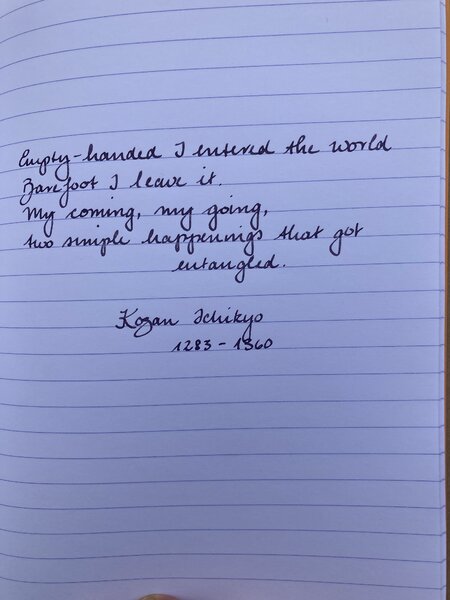 Empty-handed I entered the world
Barefoot I leave it.
My coming, my going,
two simple happenings that got
entangled.
Kozan Ichikyo
1283 - 1360